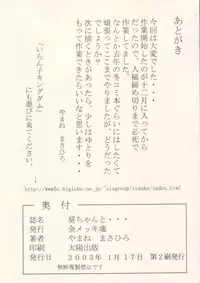 あとがき
今回は大変でした・・・
作業開始したのが十二月に入ってから
だったので、入稿締め切りまで必死で
作業してました。
なんとか去年の冬コミ本ぐらいにはしたくて
頑張ってここまでやりましたが、どうだった
でしょうか?
次に描くときがあったら、少しはゆとりを
もって作業できたらいいなと思います。
やまね まさひろ
「いちん子キングダム」
にも遊びに来てください。
奥付
誌名 葵ちゃんと・・・
発行 金メッキ魂
著者 やまね まさひろ
印刷 太陽出版
発行日 2003年1月17日 第2刷発行
無断複製禁止です